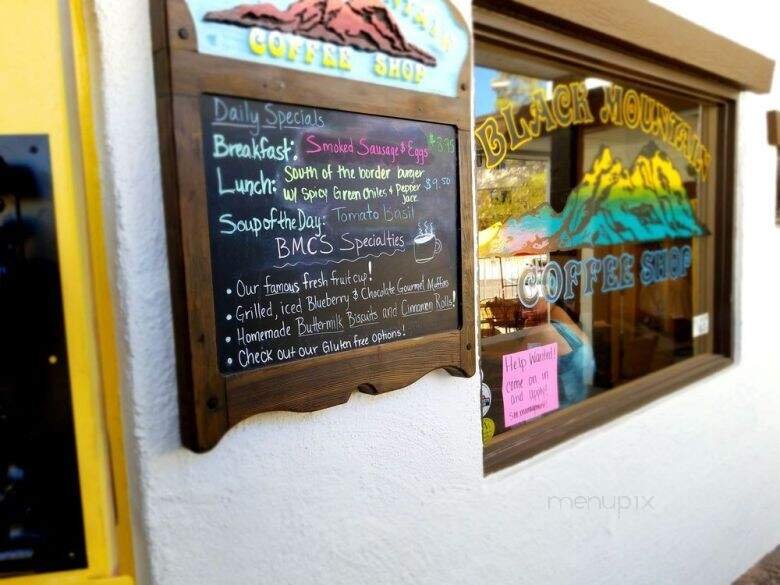 COFFEE SHOP
Daily Specials
Breakfast: Smoked Sausage & Eggs
Lunch: South of the border burger $9.50
w/ Spicy Green Chiles & Pepper
Jack
Soup of the Day: Tomato Basil
BMCS Specialties
• Our famous fresh fruit cup!
• Grilled, iced Blueberry & Chocolate Gourmet Muffins
• Homemade Buttermilk Biscuits and Cinnamon Rolls!
• Check out our Gluten free options!
BLACK MOUNTAIN
COFFEE SHOP
Help Wanted!
come on in
and apply!
menupix